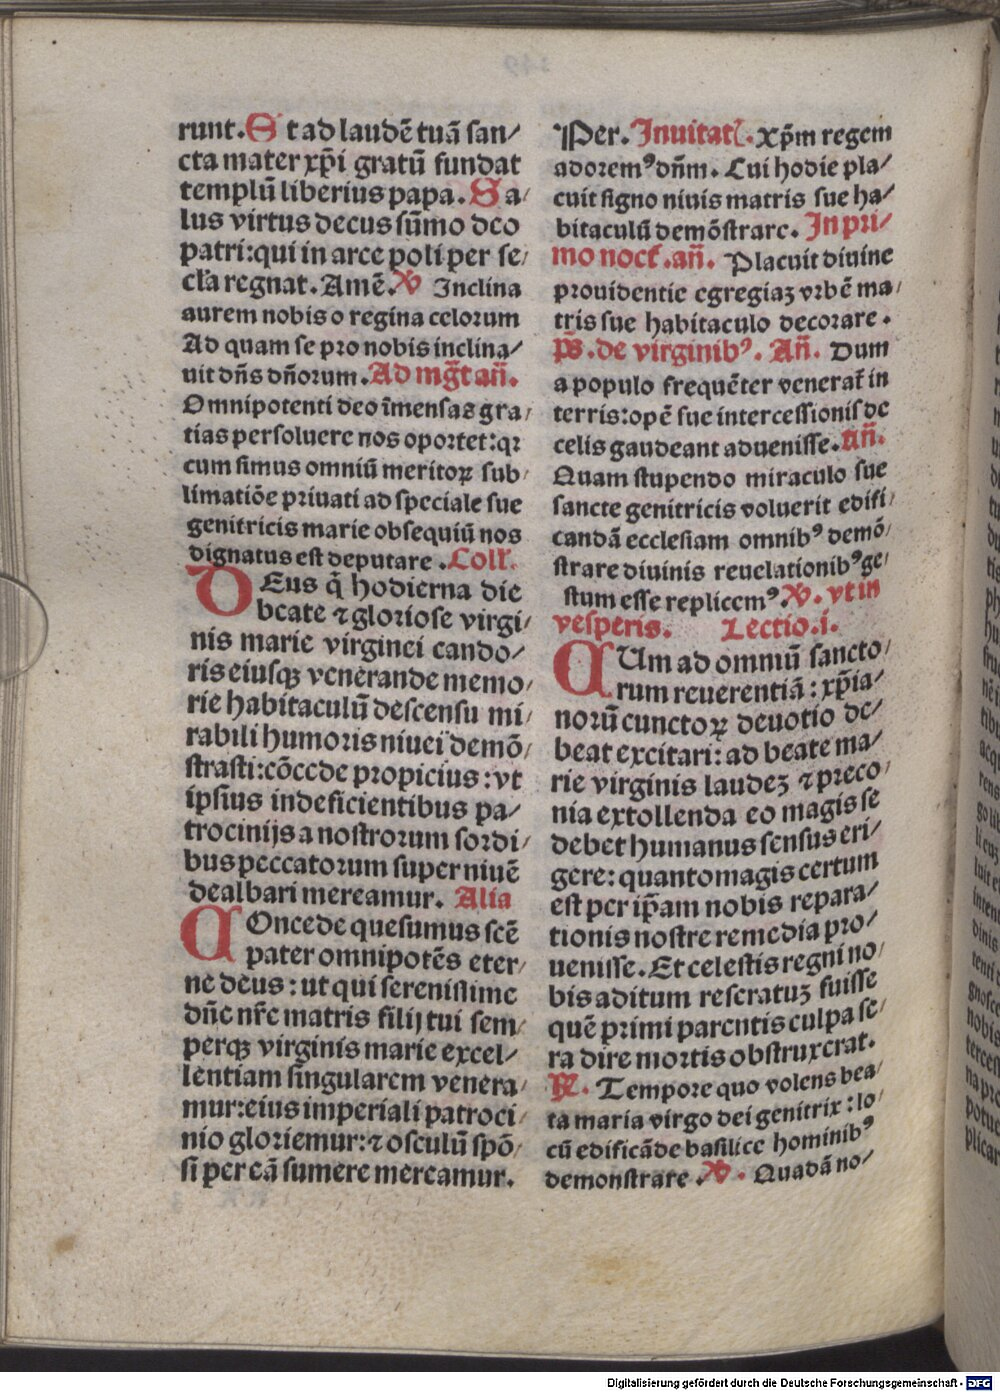 runt. St ad laudē tuā san/
cta mater xp̄i gratū fundat
templū liberius papa. Sa/
lus virtus decus sūmo deo
patri: qui in arce poli per se/
cl'a regnat. Amē. ℣ Inclina
aurem nobis o regina celorum
Ad quam se pro nobis inclina/
uit dn̄s dn̄orum. Ad mḡt an̄.
Omnipotenti deo īmensas gra/
tias persoluere nos oportet: qꝛ
cum simus omniū meritoꝝ sub/
limatiōe priuati ad speciale sue
genitricis marie obsequiū nos
dignatus est deputare. Coll'.
DEus q̄ hodierna die
beate ⁊ gloriose virgi/
nis marie virginei cando/
ris eiusqꝫ venerande memo/
rie habitaculū descensu mi/
rabili humoris niuei demō/
strasti: cōcede propicius: vt
ipsius indeficientibus pa/
trocinijs a nostrorum sordi/
bus peccatorum super niuē
dealbari mereamur. Alia
COncede quesumus scē
pater omnipotēs eter/
ne deus: ut qui serenissime
dn̄e nr̄e matris filij tui sem/
perqꝫ virginis marie excel/
lentiam singularem venera/
mur: eius imperiali patroci/
nio gloriemur: ⁊ osculū spō/
si per eā sumere mereamur.
Per. Inuitat'. Xp̄m regem
adoremꝰ dn̄m. Cui hodie pla/
cuit signo niuis matris sue ha/
bitaculū demōstrare. In pri/
mo noct'. an̄. Placuit diuine
prouidentie egregiaꝫ vrbē ma/
tris sue habitaculo decorare.
p̄s. de virginibꝰ. An̄. Dum
a populo frequēter venerat̄ in
terris: opē sue intercessionis de
celis gaudeant aduenisse. an̄.
Quam stupendo miraculo sue
sancte genitricis voluerit edifi/
candā ecclesiam omnibꝰ demō/
strare diuinis reuelationibꝰ ge/
stum esse replicemꝰ. ℣. vt in
vesperis. Lectio .i.
CUm ad omniū sancto/
rum reuerentiā: xp̄ia/
norū cunctoꝝ deuotio de/
beat excitari: ad beate ma/
rie virginis laudeꝫ ⁊ preco/
nia extollenda eo magis se
debet humanus sensus eri/
gere: quanto magis certum
est per ip̄am nobis repara/
tionis nostre remedia pro/
uenisse. Et celestis regni no/
bis aditum reseratuꝫ fuisse
quē primi parentis culpa se/
ra dire mortis obstruxerat.
℟. Tempore quo volens bea/
ta maria virgo dei genitrix: lo/
cū edificāde basilice hominibꝰ
demonstrare. ℣. Quadā no/
Digitalisierung gefördert durch die Deutsche Forschungsgemeinschaft - DFG